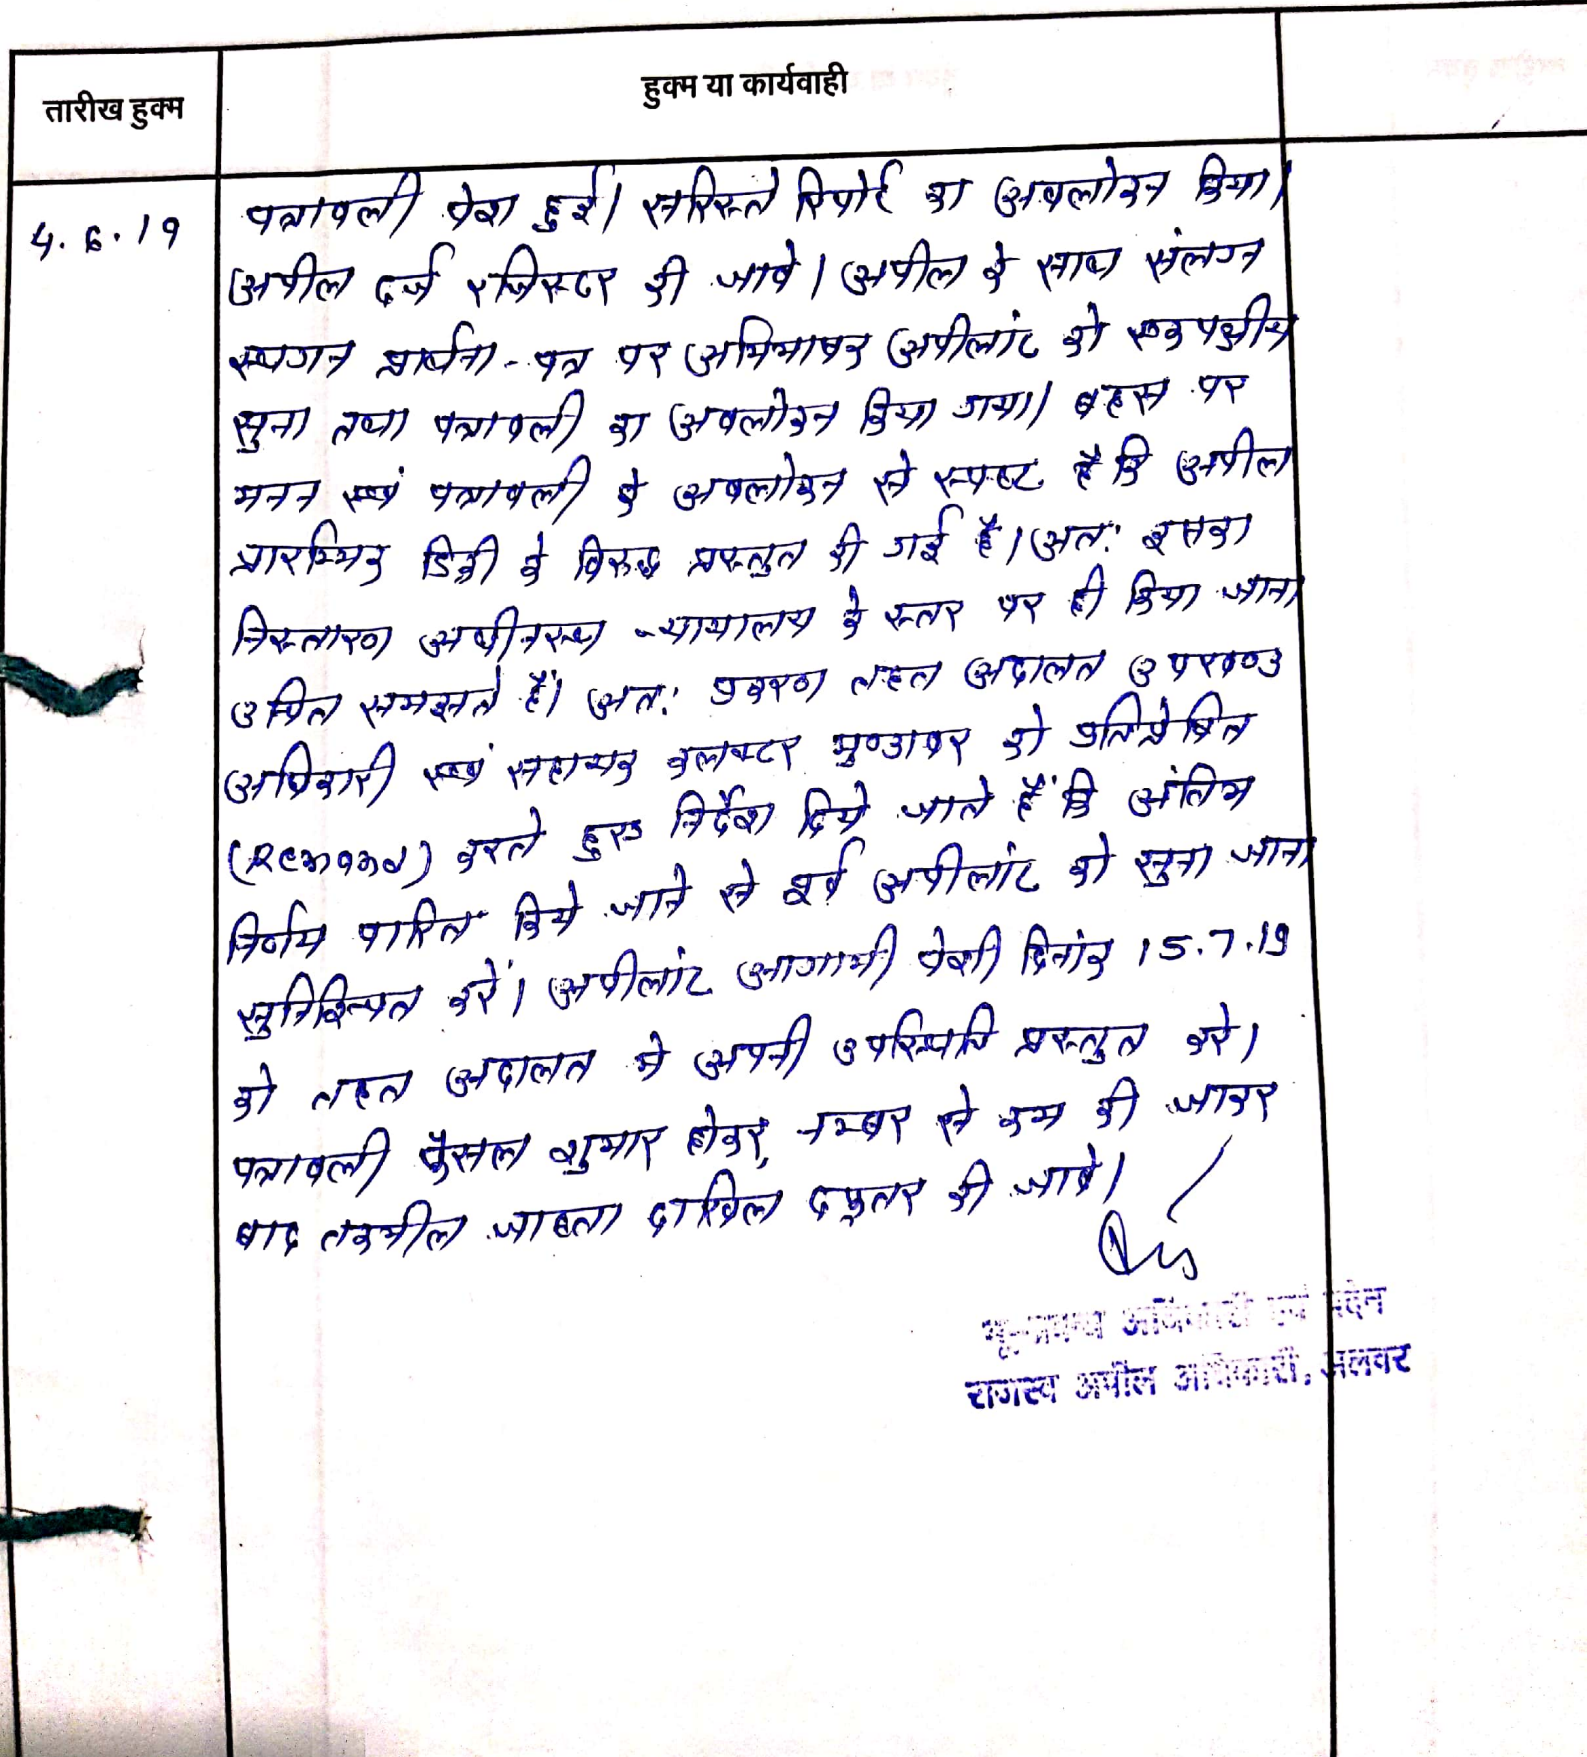 तारीख हुक्म
हुक्म या कार्यवाही
4.6.19
पत्रावली पेश हुई। सरिस्ते रिपोर्ट का अवलोकन किया।
अपील दर्ज रजिस्टर की जावे। अपील के साथ संलग्न
स्थगन प्रार्थना-पत्र पर अभिभाषक अपीलांट को एकपक्षीय
सुना तथा पत्रावली का अवलोकन किया गया। बहस पर
मनन एवं पत्रावली के अवलोकन से स्पष्ट है कि अपील
प्रारम्भिक डिक्री के विरुद्ध प्रस्तुत की गई है। अत: इसका
निस्तारण अधीनस्थ न्यायालय के स्तर पर ही किया जाना
उचित समझते हैं। अत: प्रकरण तहत अदालत उपखण्ड
अधिकारी एवं सहायक कलक्टर मुण्डावर को प्रतिप्रेषित
(Remand) करते हुए निर्देश दिये जाते हैं कि अंतिम
निर्णय पारित किये जाने से पूर्व अपीलांट को सुना जाना
सुनिश्चित करें। अपीलांट आगामी पेशी दिनांक 15.7.19
को तहत अदालत मे अपनी उपस्थिति प्रस्तुत करे।
पत्रावली फैसल शुमार होकर, नम्बर से कम की जाकर
बाद तकमील जाब्ता दाखिल दफ्तर की जावे।
भू-प्रबन्ध अधिकारी एवं पदेन
राजस्व अपील अधिकारी, अलवर